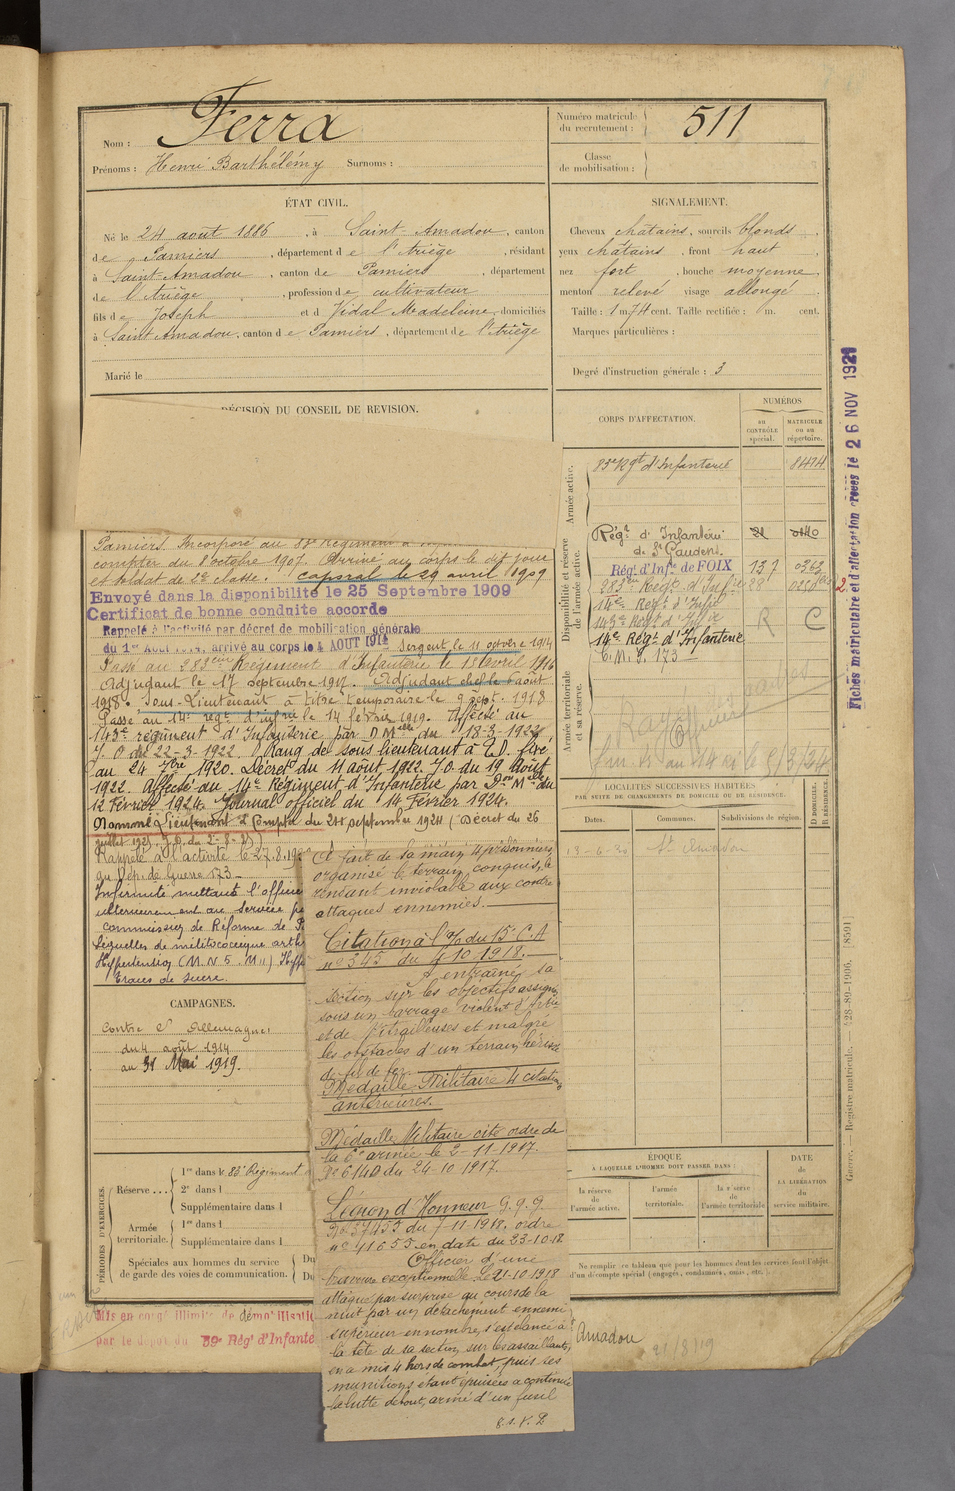 Nom : Ferra
Prénoms : Henri Barthélémy Surnoms :
Numéro matricule du recrutement : 511
Classe de mobilisation :
ÉTAT CIVIL.
Né le 24 août 1886, à Saint Amadou, canton
de Pamiers, département de l'Ariège, résidant
à Saint-Amadou, canton de Pamiers, département
de l'Ariège, profession de cultivateur
fils de Joseph et d Vidal Madeleine, domiciliés
à Saint Amadou, canton de Pamiers, département de l'Ariège
Marié le
SIGNALEMENT.
Cheveux châtains, sourcils blonds
yeux châtains, front haut
nez fort, bouche moyenne
menton relevé visage allongé
Taille : 1 m. 74 cent. Taille rectifiée : m. cent.
Marques particulières :
Degré d'instruction générale : 3
DÉCISION DU CONSEIL DE REVISION.
Pamiers. Incorporé au 83e Régiment
compter du 8 octobre 1907. Arrivé au corps le dit jour
et soldat de 2e classe. Caporal le 29 avril 1909
Envoyé dans la disponibilité le 25 Septembre 1909
Certificat de bonne conduite accordé
Rappelé à l'activité par décret de mobilisation générale
du 1er Août 1914, arrivé au corps le 4 AOUT 1914 Sergent le 11 octobre 1914
Passé au 283eme Régiment d'Infanterie le 13 avril 1916
Adjudant le 17 septembre 1917. Adjudant chef le août
1918. Sous-Lieutenant à titre temporaire le 9 sept. 1918
Passé au 14e régt d'infrie le 14 février 1919. Affecté au
143e régiment d'Infanterie par D Melle du 18-3-1922,
J.O du 22-3-1922. Rang de sous lieutenant à T.D. fixé
au 24 7bre 1920. Décret du 11 août 1922. J.O. du 19 Août
1922. Affecté du 14e Régiment d'Infanterie par Don Melle du
12 Février 1924. Journal officiel du 14 Février 1924.
Nommé Lieutenant à Compter du 24 septembre 1924 (Décret du 26
Rappelé à l'activité le 27.8.19
au Dép. de Guerre 173
Infirmité mettant l'office
ultérieurement au service
commission de Réforme de
Séquelles de mélitococcique arth
Hypertension
traces de sucre.
CORPS D'AFFECTATION.
NUMÉROS
au CONTRÔLE spécial.
MATRICULE ou au répertoire.
Armée active.
83e Rgt d'Infanterie 8474
Disponibilité et réserve de l'armée active.
Régt d'Infanterie
de St Gaudens.
Rég. d'Inf. de FOIX 137
283eme Régt d'Infie
14e Régt d'Infie
143e Régt d'Infie R C
14e Régt d'Infanterie
C.M.I. 173
Armée territoriale et sa réserve.
Rayé
LOCALITÉS SUCCESSIVES HABITÉES
PAR SUITE DE CHANGEMENTS DE DOMICILE OU DE RÉSIDENCE.
Dates. Communes. Subdivisions de région. D. DOMICILE. R. RÉSIDENCE.
St Amadou
A fait de sa main 4 prisonniers
organisé le terrain conquis, le
rendant inviolable aux contre
attaques ennemies.
Citation à l'O/ du 15e C.A
no 345 du 4 10 1918.
A entraîné sa
section sur les objectifs assignés
sous un barrage violent d'artie
et de mitrailleuses et malgré
les obstacles d'un terrain hérissé
de fil de fer.
Médaille Militaire 4 citations
antérieures.
Médaille Militaire cité ordre de
la 6e armée le 2-11-1917.
No 6140 du 24-10 1917.
Légion d'Honneur G.Q.G
No 37455 du 7-11-1918. ordre
no 11655 en date du 23-10-18
Officier d'une
bravoure exceptionnelle. Le 21-10 1918
attaqué par surprise au cours de la
nuit par un détachement ennemi
supérieur en nombre, s'est élancé à
la tête de sa section sur les assaillants,
en a mis 4 hors de combat, puis ses
munitions étant épuisées a continué
la lutte debout, armé d'un fusil
CAMPAGNES.
Contre l'Allemagne
du 4 août 1914
au 31 Mai 1919.
PÉRIODES D'EXERCICES.
Réserve
1re dans le 83e Régiment
2e dans l
Supplémentaire dans l
Armée territoriale.
1re dans l
Supplémentaire dans l
Spéciales aux hommes du service de garde des voies de communication. Du Du
ÉPOQUE
À LAQUELLE L'HOMME DOIT PASSER DANS :
la réserve de l'armée active.
l'armée territoriale.
la réserve de l'armée territoriale
DATE de LA LIBÉRATION du service militaire.
Ne remplir ce tableau que pour les hommes dont les services font l'objet
d'un décompte spécial (engagés, condamnés, omis, etc.
Mis en congé illimité de démobilisation
par le dépôt du 59e Rég d'Infante
Amadou
21/8/19
Fiches matriculaire et d'affectation créées le 26 NOV 1921
Guerre. — Registre matricule. — 628-89-1906. [8591]